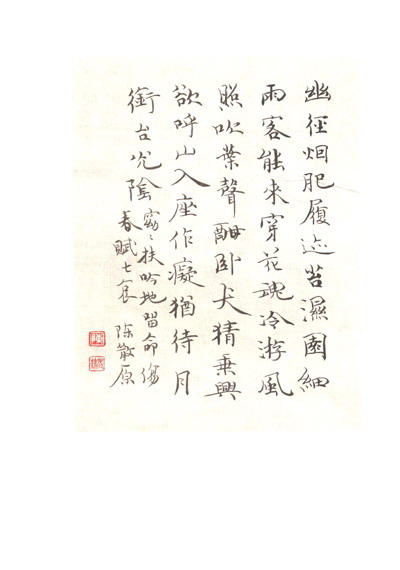 幽徑烟肥履迹苔濕園細
雨客能來穿花魂冷游風
照吹葉聲酣卧犬猜乘興
欲呼山入座作癡猶待月
銜台光陰窈〻扶吟地留命傷
春賦七哀 陳散原